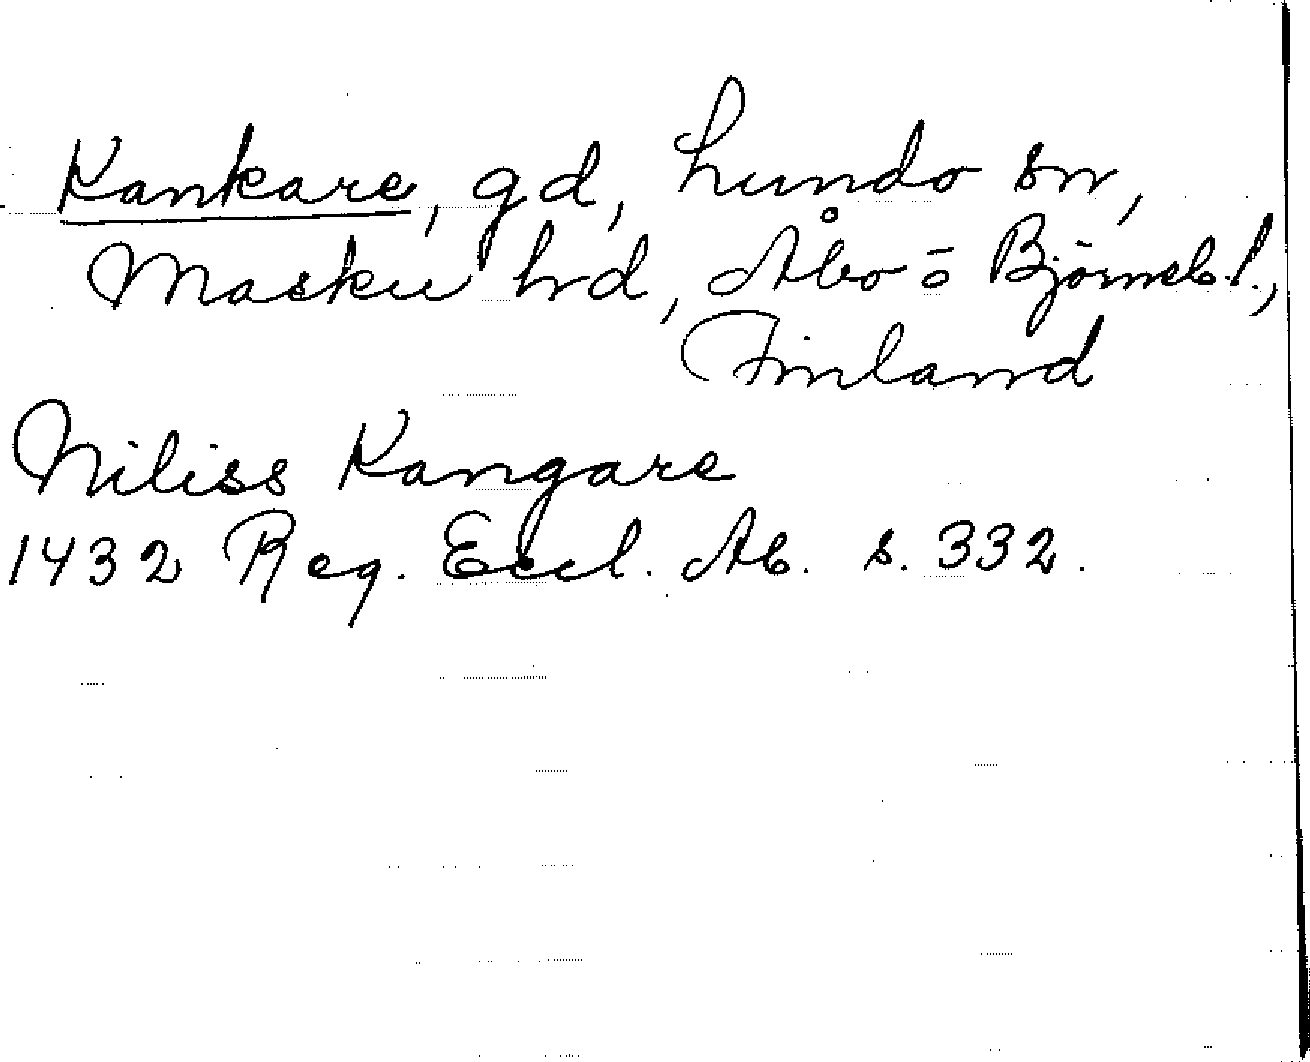 Kankare, gd, Lundo sn,
Masku hd, Åbo o Björneb.l.,
Finland
Niliss Kangare
1432 Reg. Eccl. Ab. s. 332.